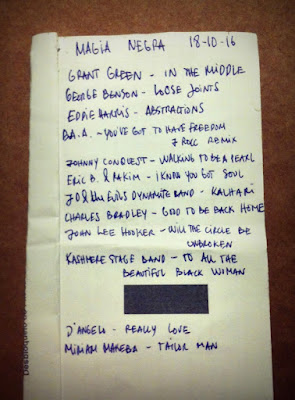 MAGIA NEGRA 18-10-16
GRANT GREEN - IN THE MIDDLE
GEORGE BENSON - LOOSE JOINTS
EDDIE HARRIS - ABSTRACTIONS
B.A.A. - YOU'VE GOT TO HAVE FREEDOM
J ROCC REMIX
JOHNNY CONQUEST - WALKING TO BE A PEARL
ERIC B. & RAKIM - I KNOW YOU GOT SOUL
JD & the EVILS DYNAMITE BAND - KALHARI
CHARLES BRADLEY - GOOD TO BE BACK HOME
JOHN LEE HOOKER - WILL THE CIRCLE BE
UNBROKEN
KASHMERE STAGE BAND - TO ALL THE
BEAUTIFUL BLACK WOMAN
D'ANGELO - REALLY LOVE
MIRIAM MAKEBA - TAILOR MAN